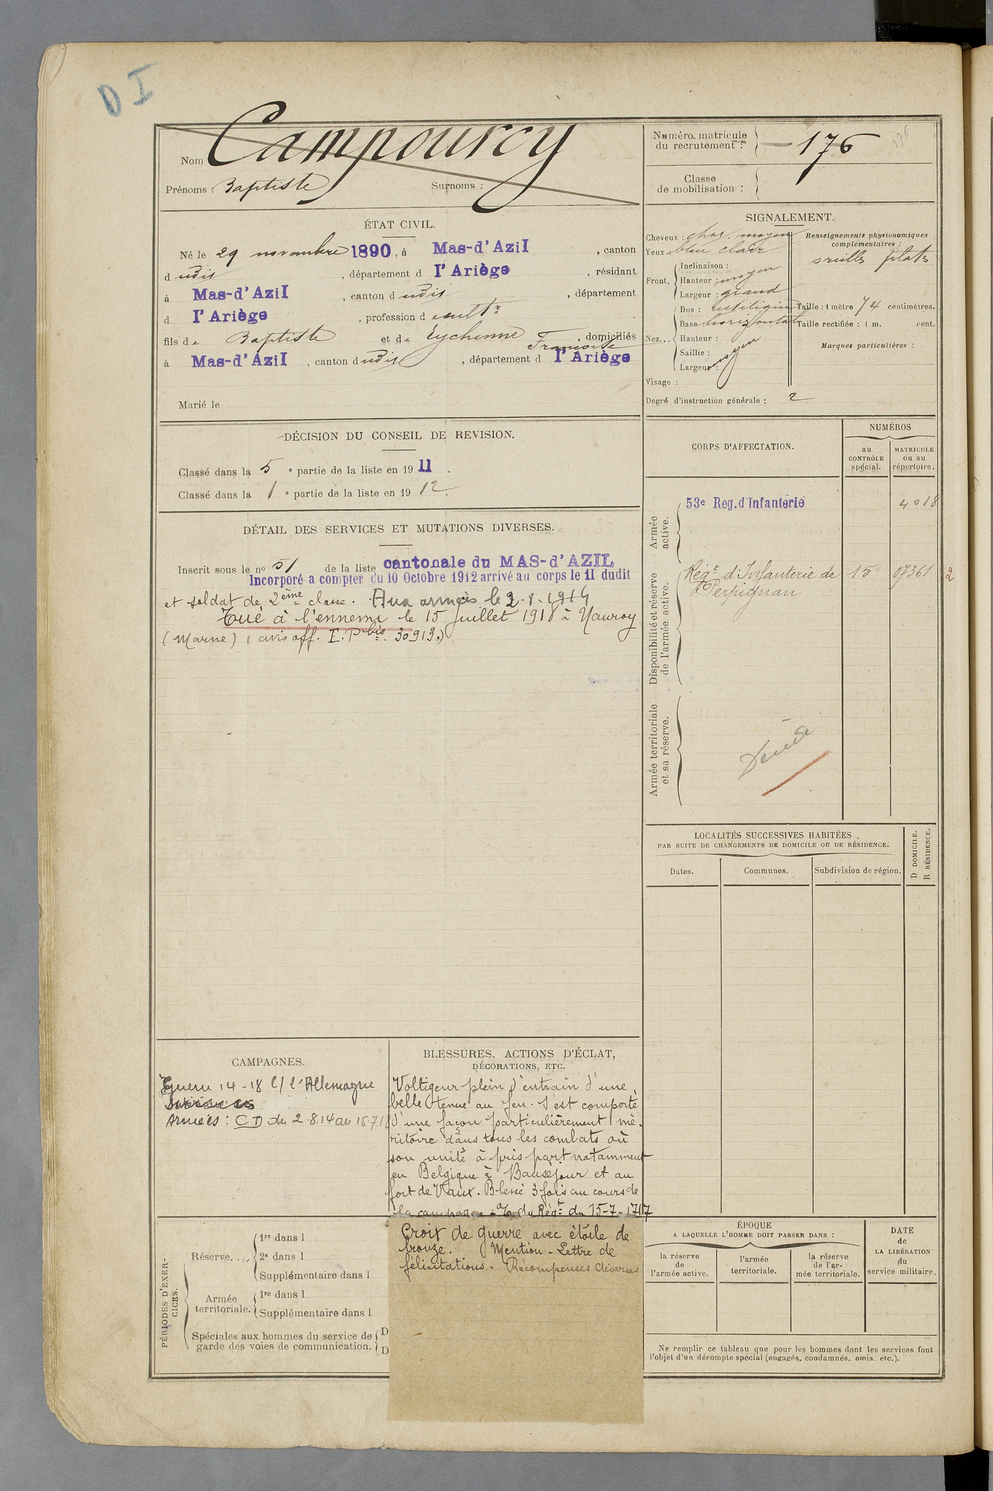 D I
Nom Campourcy
Prénoms Baptiste Surnoms :
Numéro matricule
du recrutement : 176
Classe
de mobilisation :
ÉTAT CIVIL.
Né le 29 novembre 1890, à Mas-d'Azil, canton
d udit, département d l'Ariège, résidant
à Mas-d'Azil, canton d udit, département
d l'Ariège, profession d cultr
fils de Baptiste et de Eychenne Françoise, domiciliés
à Mas-d'Azil, canton dudit, département d l'Ariège
Marié le
SIGNALEMENT.
Cheveux : chat. moyen
Yeux : bleu clair
Front. Inclinaison :
Hauteur : moyen
Largeur : grand
Nez... Dos : rectiligne
Base horizontale
Hauteur :
Saillie : moyen
Largeur :
Visage :
Renseignements physionomiques
complémentaires :
oreilles plates
Taille : 1 mètre 74 centimètres.
Taille rectifiée : 1 m. cent.
Marques particulières :
Degré d'instruction générale : 2
DÉCISION DU CONSEIL DE REVISION.
Classé dans la 5 e partie de la liste en 1911.
Classé dans la 1 e partie de la liste en 1912.
DÉTAIL DES SERVICES ET MUTATIONS DIVERSES.
Inscrit sous le no 51 de la liste cantonale du MAS-d'AZIL
Incorporé a compter du 10 Octobre 1912 arrivé au corps le 11 dudit
et soldat de 2ème classe. Aux armées le 2-8-1914
Tué à l'ennemi le 15 juillet 1918 à Nauroy
(Marne) (avis off. E.P bis. 30919.)
CORPS D'AFFECTATION.
NUMÉROS
au
CONTRÔLE
spécial.
MATRICULE
OU AU
répertoire.
Armée
active.
53e Reg. d'Infanterie 4018
Disponibilité et réserve
de l'armée active.
Régt d'Infanterie de 15 07361 2
Perpignan
Armée territoriale
et sa réserve.
Décédé
LOCALITÉS SUCCESSIVES HABITÉES
PAR SUITE DE CHANGEMENTS DE DOMICILE OU DE RÉSIDENCE.
Dates. Communes. Subdivision de région.
D DOMICILE.
R RÉSIDENCE.
CAMPAGNES.
Guerre 14-18 C/ l'Allemagne
Armées : CD du 2.8.14 au 15.7.18
BLESSURES, ACTIONS D'ÉCLAT,
DÉCORATIONS, ETC.
Voltigeur plein d'entrain d'une
belle tenue au feu. S'est comporté
d'une façon particulièrement mé-
ritoire dans tous les combats où
son unité à pris part notamment
en Belgique à Bauséjour et au
fort de Vaux. Blessé 3 fois au cours de
la campagne. O/ du Régt du 15-7-1917
Croix de guerre avec étoile de
bronze. Mention - Lettre de
félicitations. Récompenses diverses
PÉRIODES D'EXER-
CICES.
Réserve....
1re dans l
2e dans l
Supplémentaire dans l
Armée
territoriale.
1re dans l
Supplémentaire dans l
Spéciales aux hommes du service de D
garde des voies de communication. D
ÉPOQUE
A LAQUELLE L'HOMME DOIT PASSER DANS :
la réserve
de
l'armée active.
l'armée
territoriale.
la réserve
de l'ar-
mée territoriale.
DATE
de
LA LIBÉRATION
du
service militaire.
Ne remplir ce tableau que pour les hommes dont les services font
l'objet d'un décompte spécial (engagés, condamnés, omis, etc.).